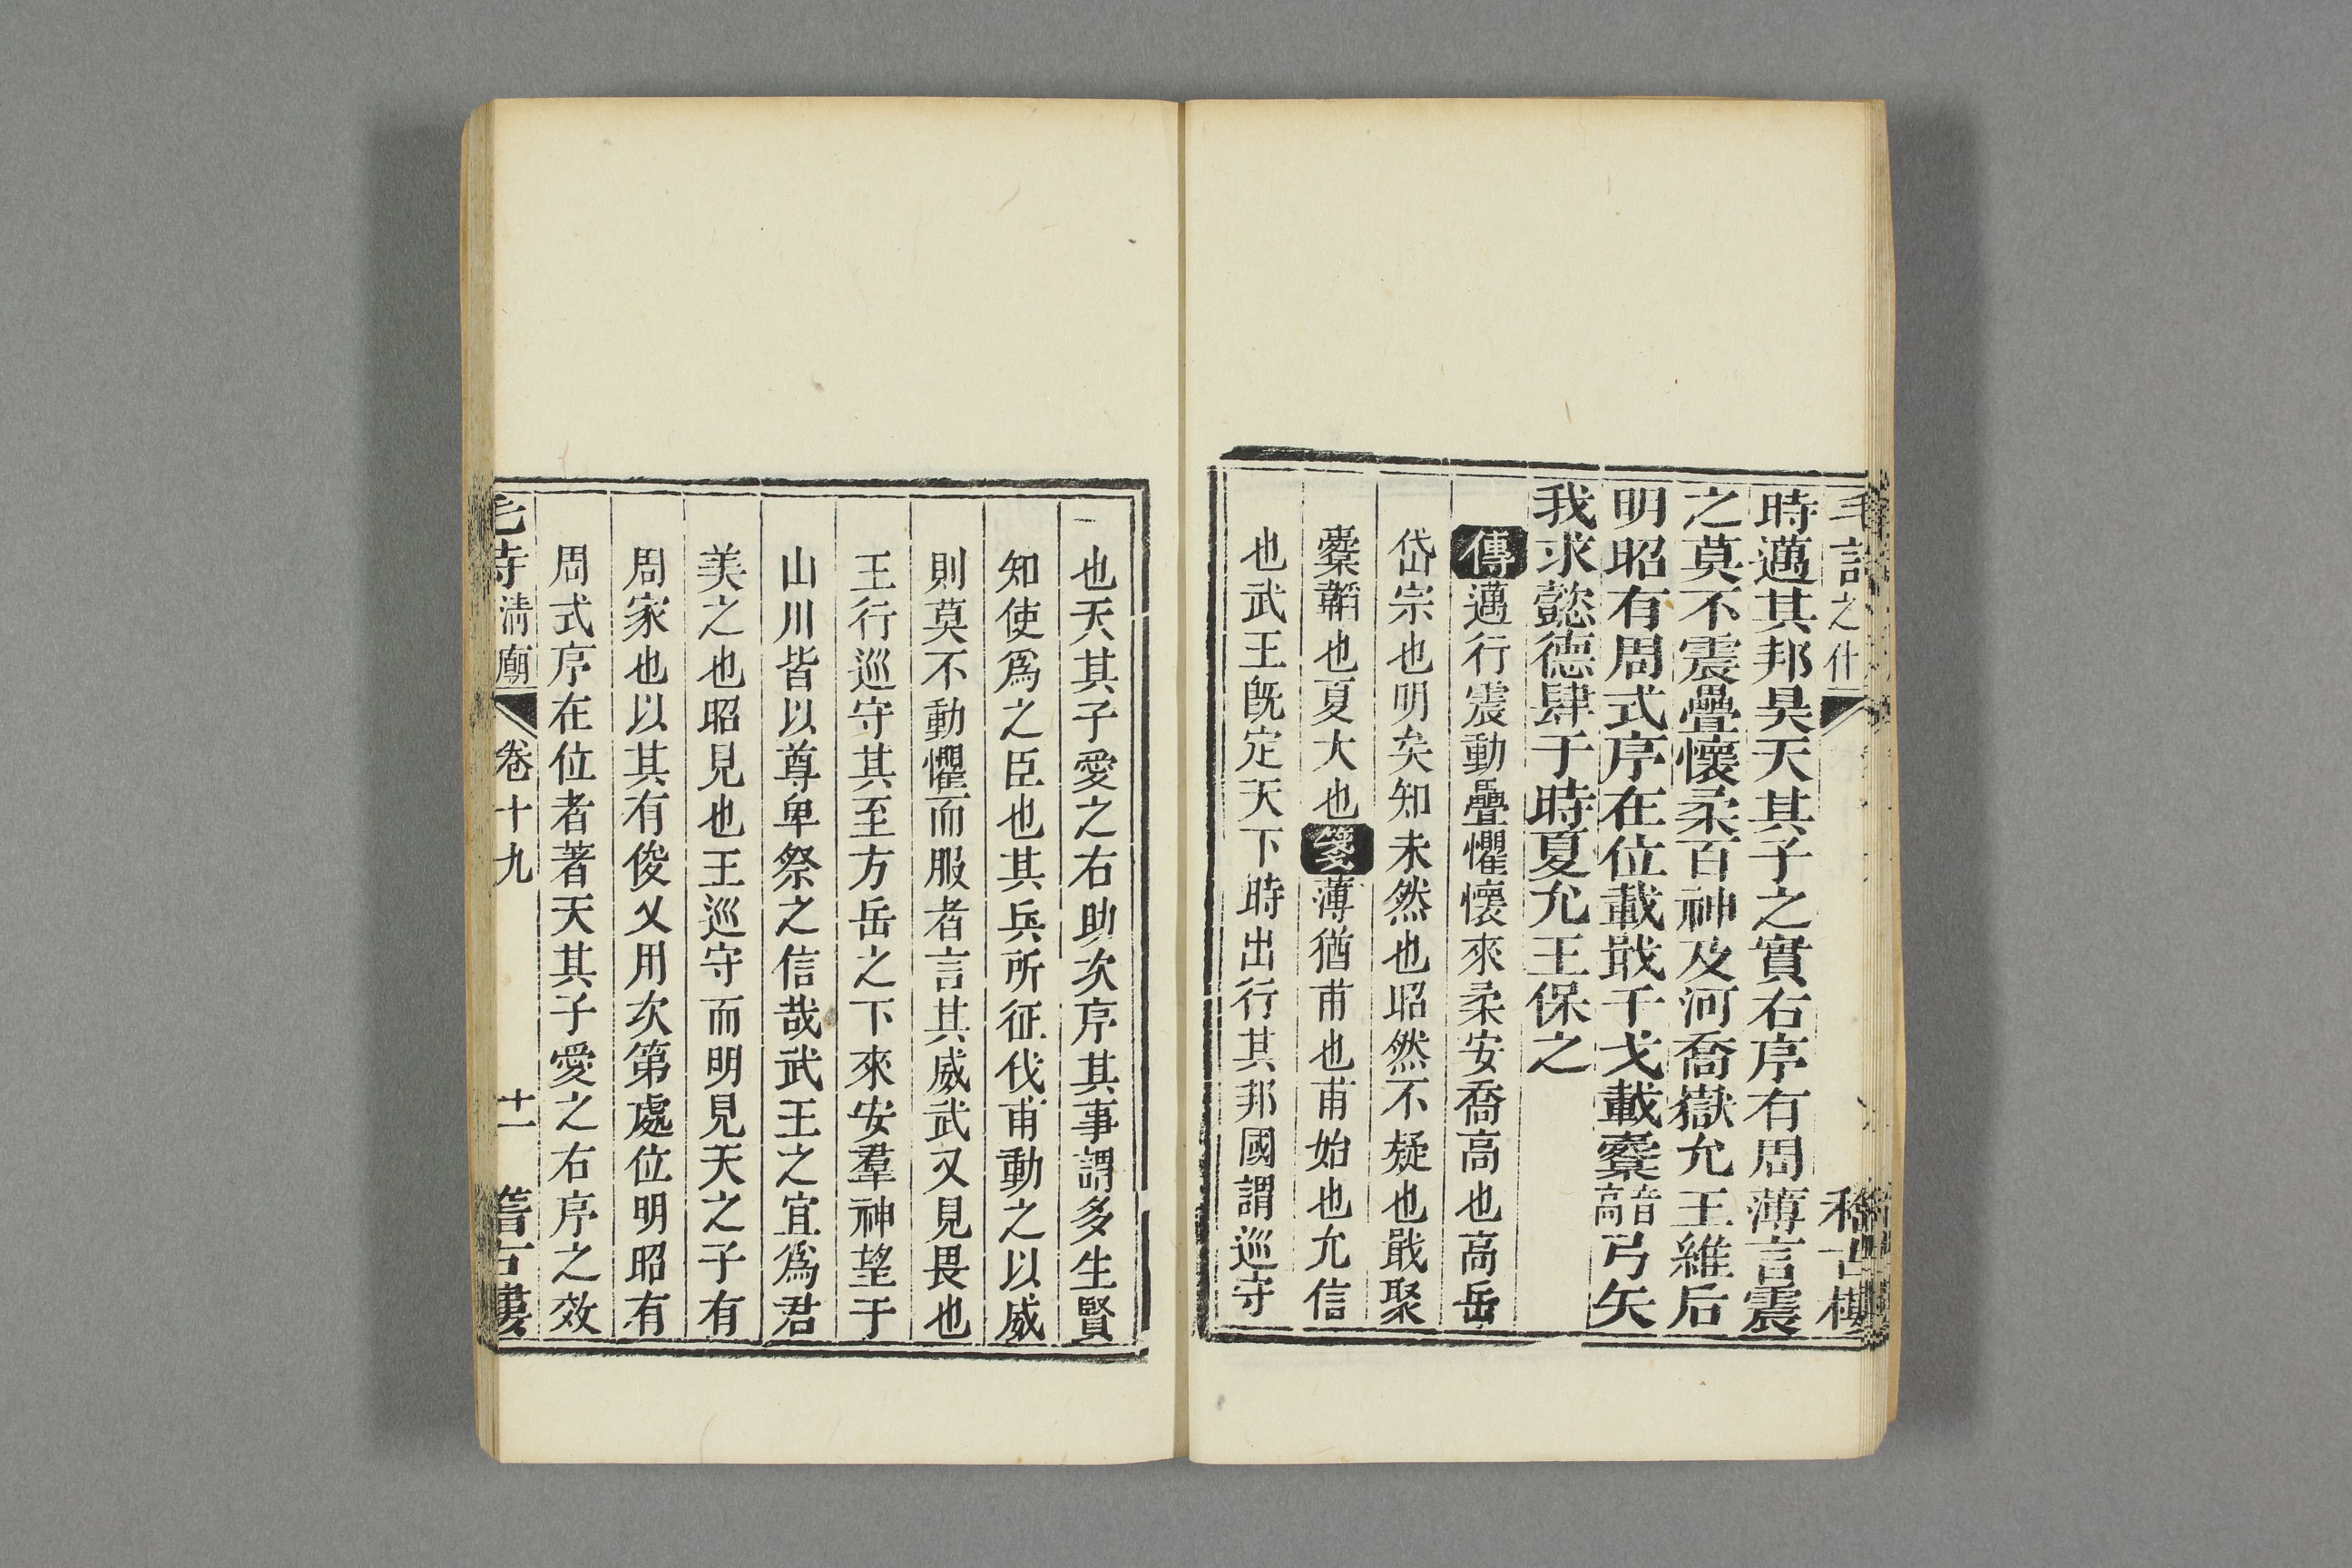 時邁其邦昊天其子之實右序有周薄言震
之莫不震疊懷柔百神及河喬嶽允王維后
明昭有周式序在位載戢干戈載櫜音高弓矢
我求懿德肆于時夏允王保之
傳邁行震動疊懼懷來柔安喬高也高岳
岱宗也明矣知未然也昭然不疑也戢聚
櫜韜也夏大也箋薄猶甫也甫始也允信
也武王旣定天下時出行其邦國謂巡守
也天其子愛之右助次序其事謂多生賢
知使爲之臣也其兵所征伐甫動之以威
則莫不動懼而服者言其威武又見畏也
王行巡守其至方岳之下來安羣神望于
山川皆以尊卑祭之信哉武王之宜爲君
美之也昭見也王巡守而明見天之子有
周家也以其有俊乂用次第處位明昭有
周式序在位者著天其子愛之右序之效
毛詩清廟 卷十九 十一 稽古樓